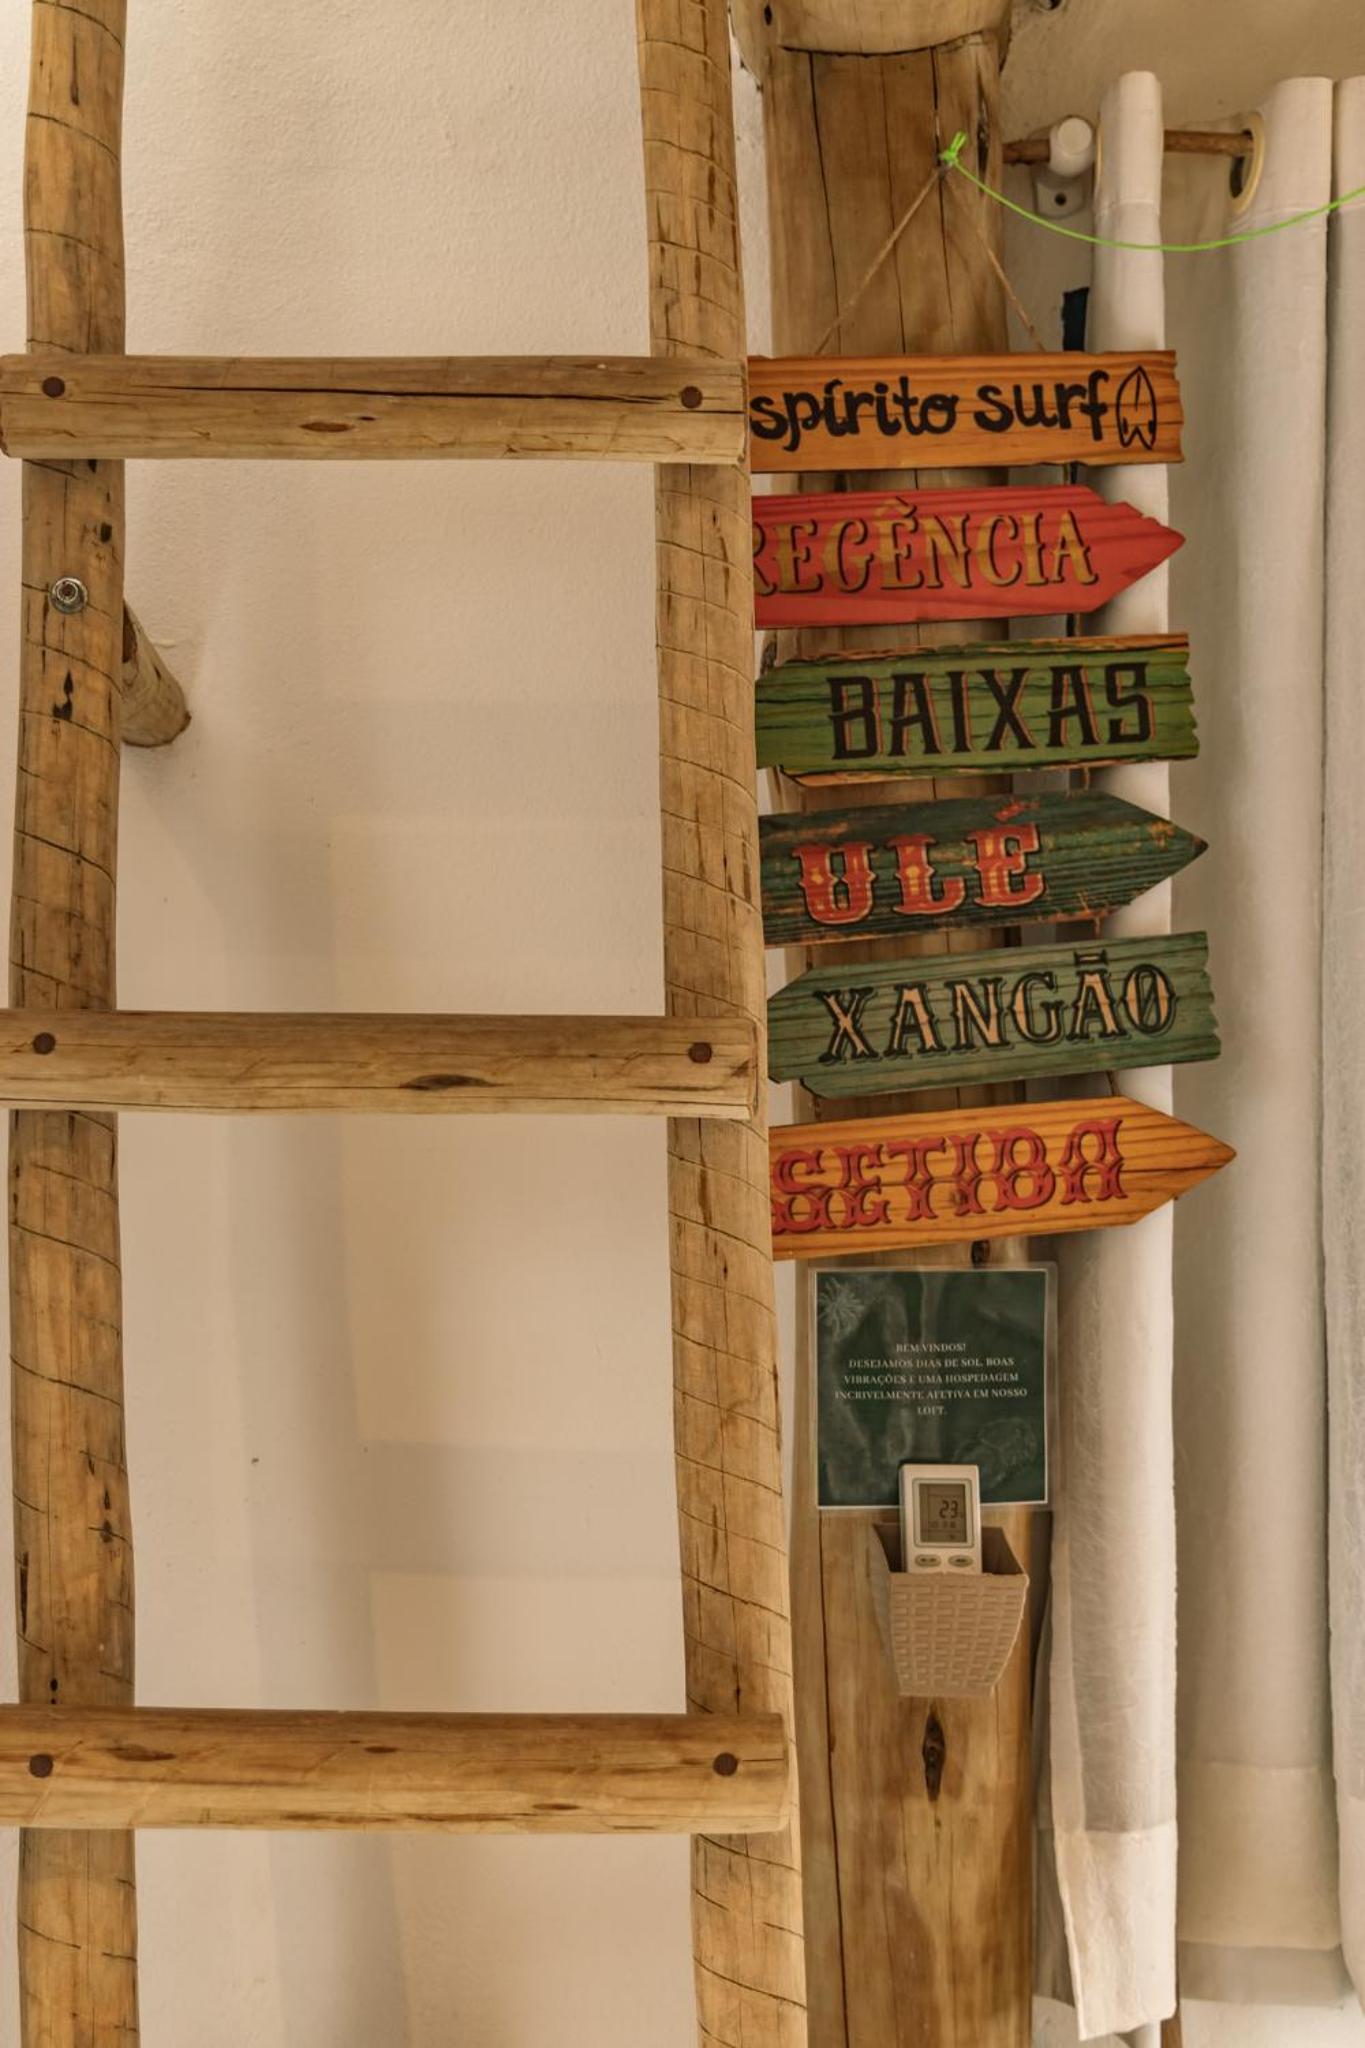 spírito surf
REGÊNCIA
BAIXAS
ULÉ
XANGÃO
SETIBA
BEM VINDOS!
DESEJAMOS DIAS DE SOL, BOAS
VIBRAÇÕES E UMA HOSPEDAGEM
INCRIVELMENTE AFETIVA EM NOSSO
LOFT.
23